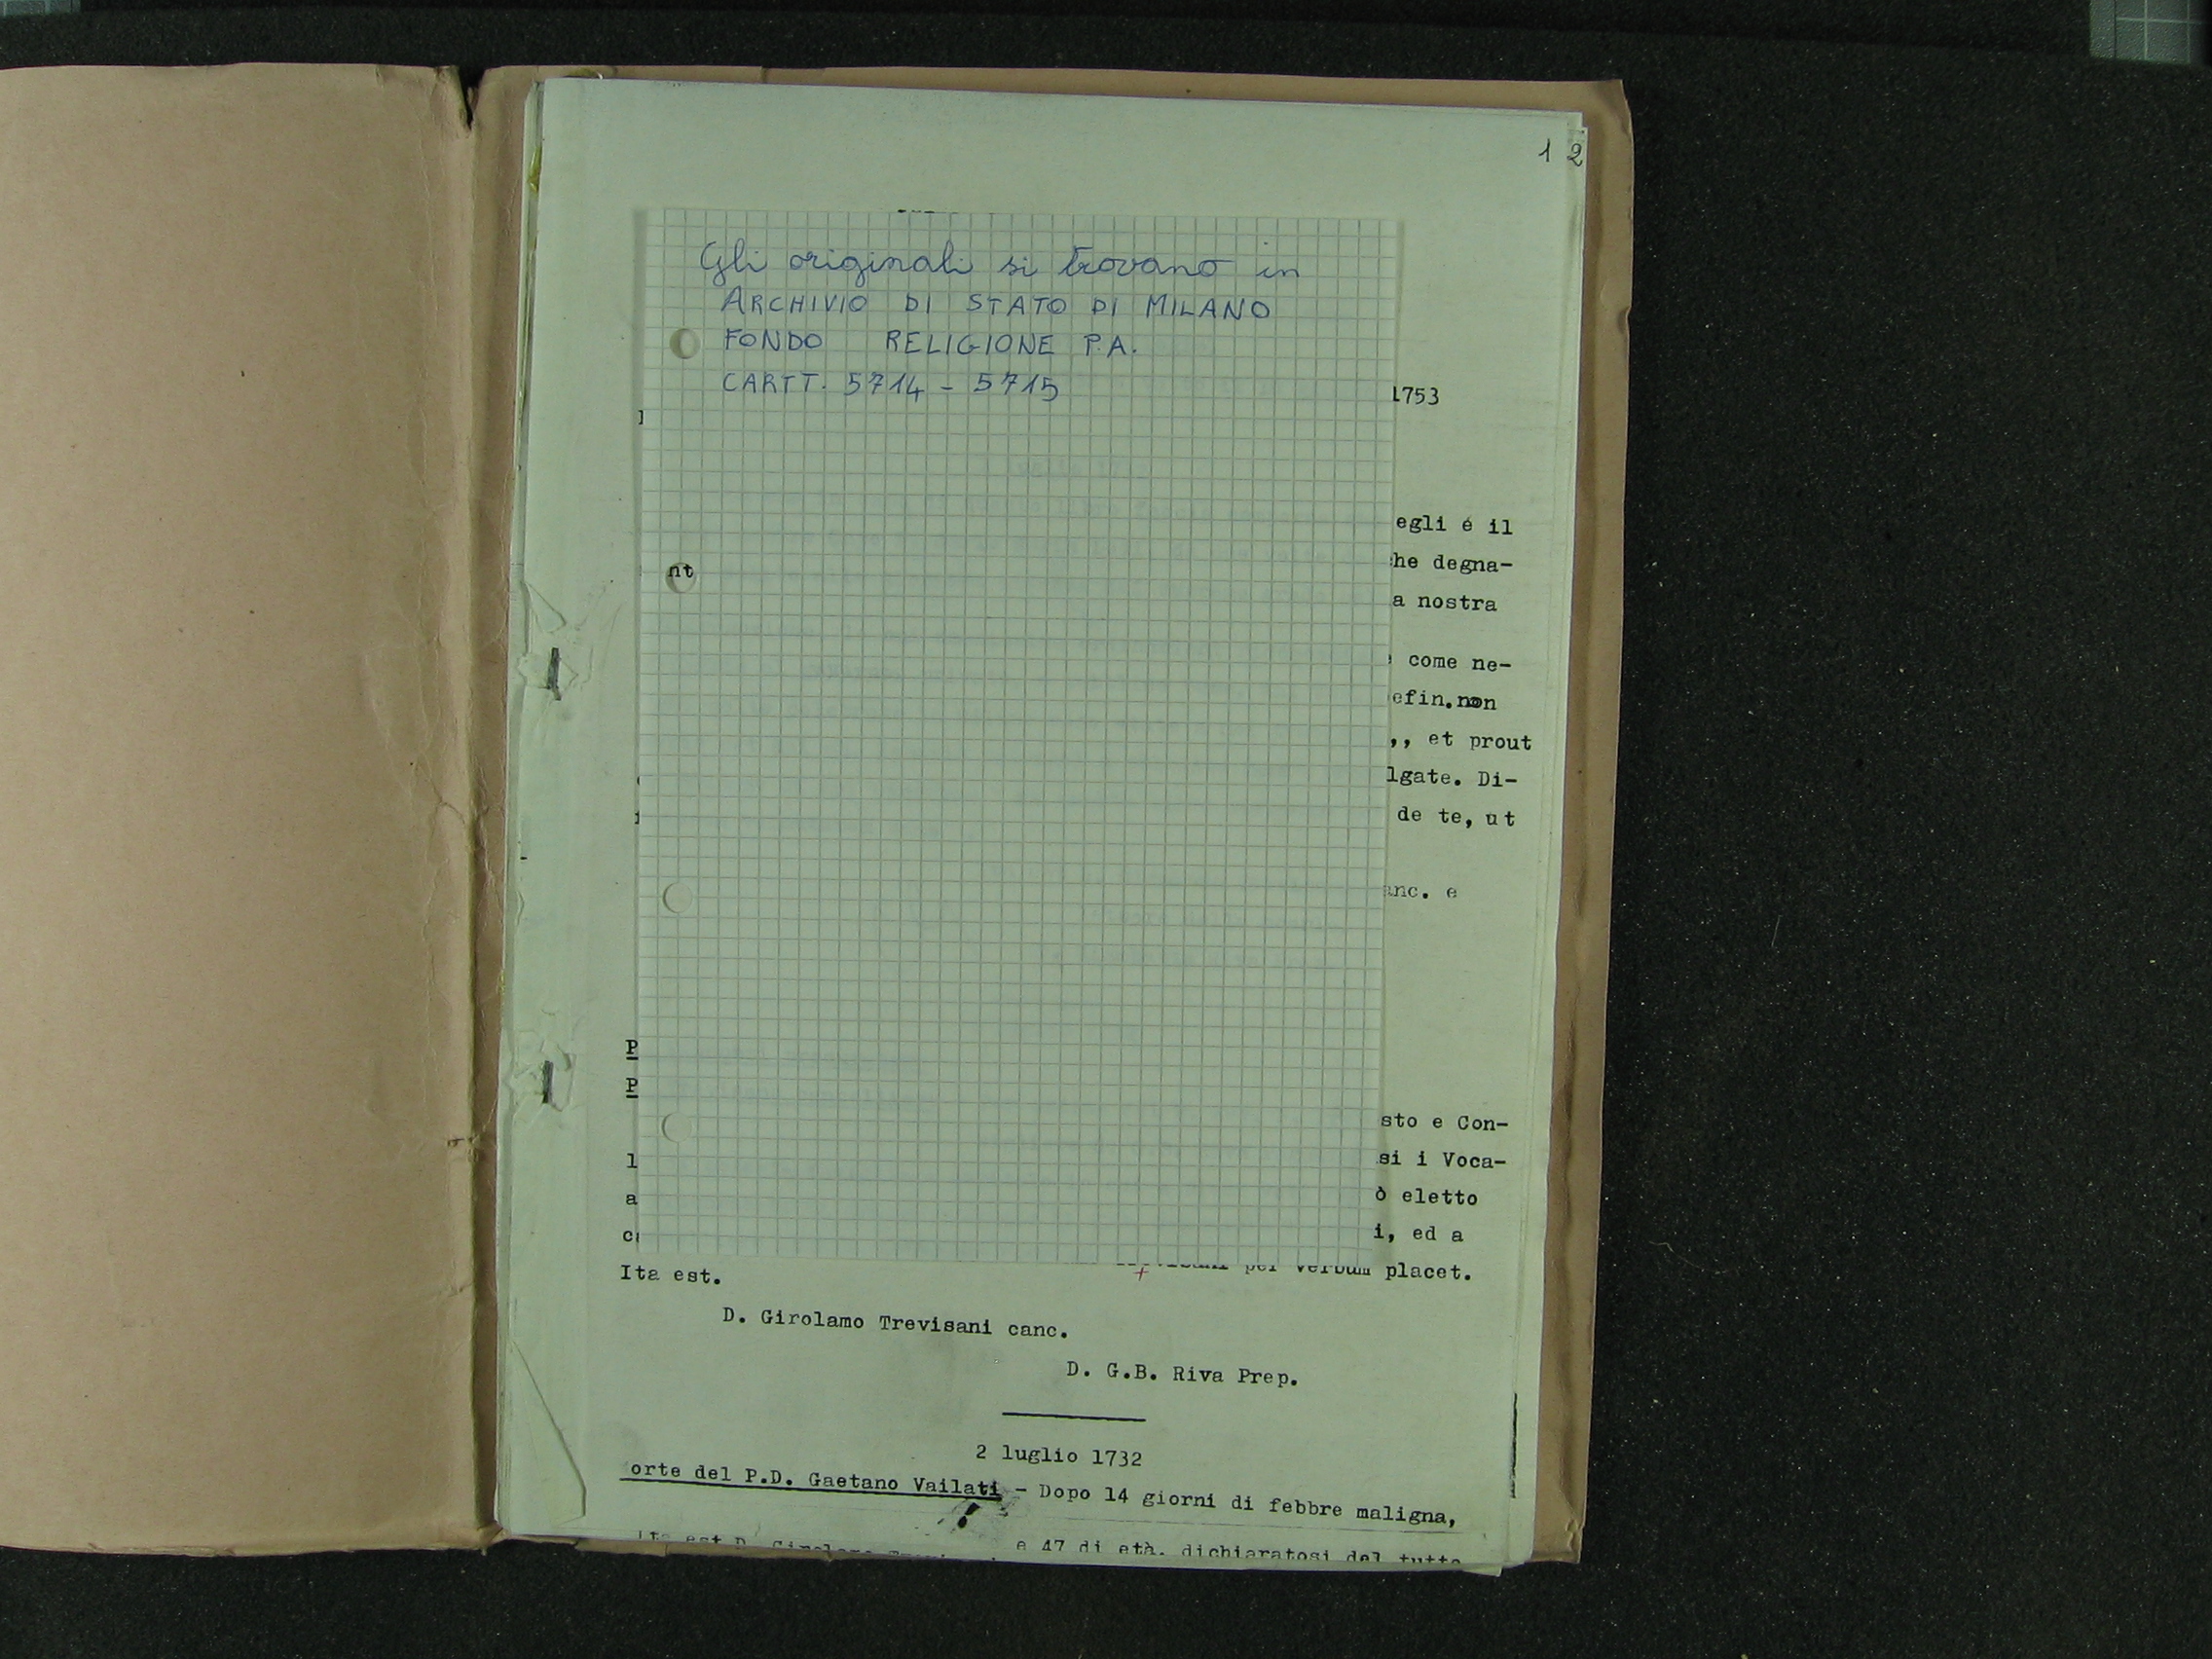 1 2
Gli originali si trovano in
ARCHIVIO DI STATO DI MILANO
FONDO RELIGIONE P.A.
CARTT. 5714 - 5715
1753
egli é il
he degna-
nt
a nostra
come ne-
efin.non
,, et prout
lgate. Di-
de te, ut
anc. e
P
P
sto e Con-
l si i Voca-
a ò eletto
c i, ed a
placet.
Ita est.
D. Girolamo Trevisani canc.
D. G.B. Riva Prep.
2 luglio 1732
orte del P.D. Gaetano Vailati - Dopo 14 giorni di febbre maligna,
e 47 di età, dichiaratosi del tutto